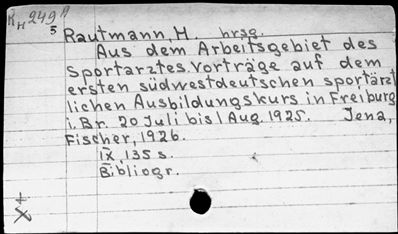 RH249A
5
Rautmann, H. hrsg.
Aus dem Arbeitsgebiet des
Sportarztes. Vorträge auf dem
ersten südwestdeutschen sportärzt
lichen Ausbildungskurs in Freiburg
i. Br. 20 Juli bis 1 Aug. 1925. Jena,
Fischer, 1926.
IX, 135 s.
Bibliogr.